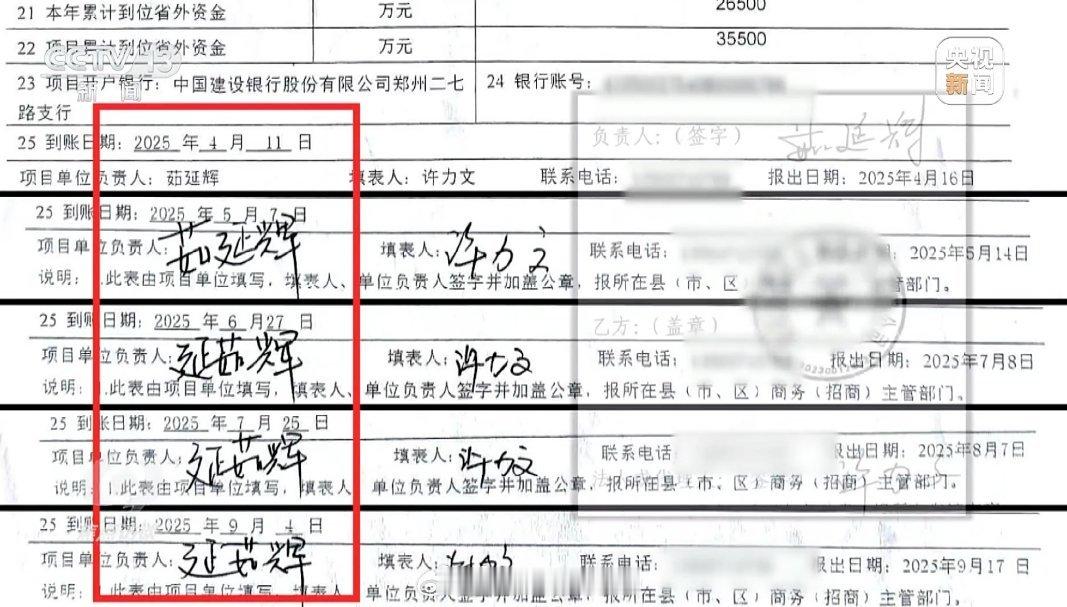 21 本年累计到位省外资金 万元 26500
22 项目累计到位省外资金 万元 35500
CCTV 13
新闻
央视
新闻
23 项目开户银行：中国建设银行股份有限公司郑州二七路支行
24 银行账号：
负责人：（签字） 茹延辉
25 到账日期：2025 年 4 月 11 日
项目单位负责人：茹延辉 填表人：许力文 联系电话： 报出日期：2025年4月16日
25 到账日期：2025 年 5 月 7 日
项目单位负责人：茹延辉 填表人：许力文 联系电话： 2025年5月14日
说明：1.此表由项目单位填写，填表人、单位负责人签字并加盖公章，报所在县（市、区） 部门。
25 到账日期：2025 年 6 月 27 日
乙方：（盖章）
项目单位负责人：延茹辉 填表人：许力文 联系电话： 报出日期：2025年7月8日
说明：1.此表由项目单位填写，填表人、单位负责人签字并加盖公章，报所在县（市、区）商务（招商）主管部门。
25 到账日期：2025 年 7 月 25 日
项目单位负责人：延茹辉 填表人：许力文 联系电话： 报出日期：2025年8月7日
说明：1.此表由项目单位填写，填表人、单位负责人签字并加盖公章，报所在县（市、区）商务（招商）主管部门。
许力文
25 到账日期：2025 年 9 月 4 日
项目单位负责人：延茹辉 填表人： 联系电话： 报出日期：2025年9月17日
说明：1.此表由项目单位填写，填表人、单位负责人签字并加盖公章，报所在县（市、区）商务（招商）主管部门。